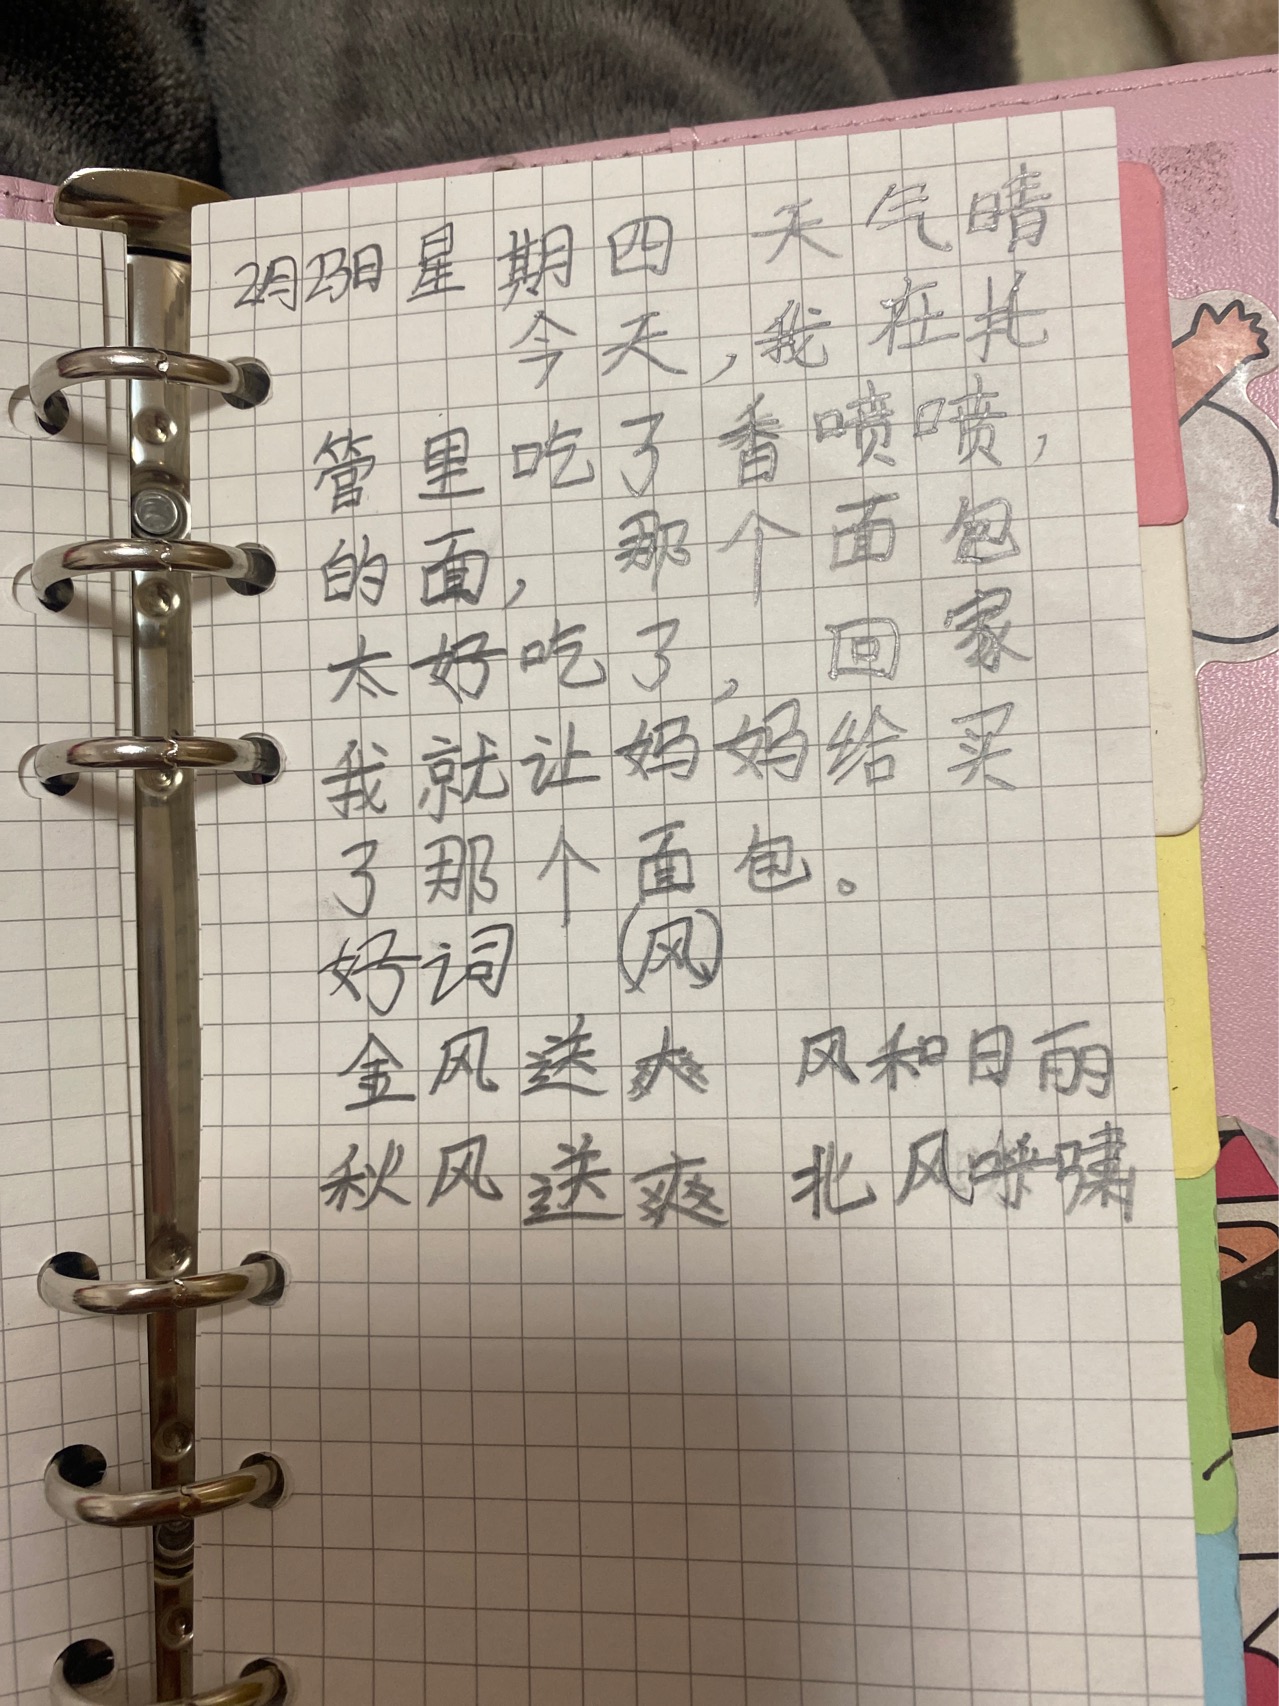 2月23日星期四 天气晴
今天,我在托
管里吃了香喷喷,
的面, 那个面包
太好吃了, 回家
我就让妈妈给买
了那个面包。
好词 (风)
金风送爽 风和日丽
秋风送爽 北风呼啸